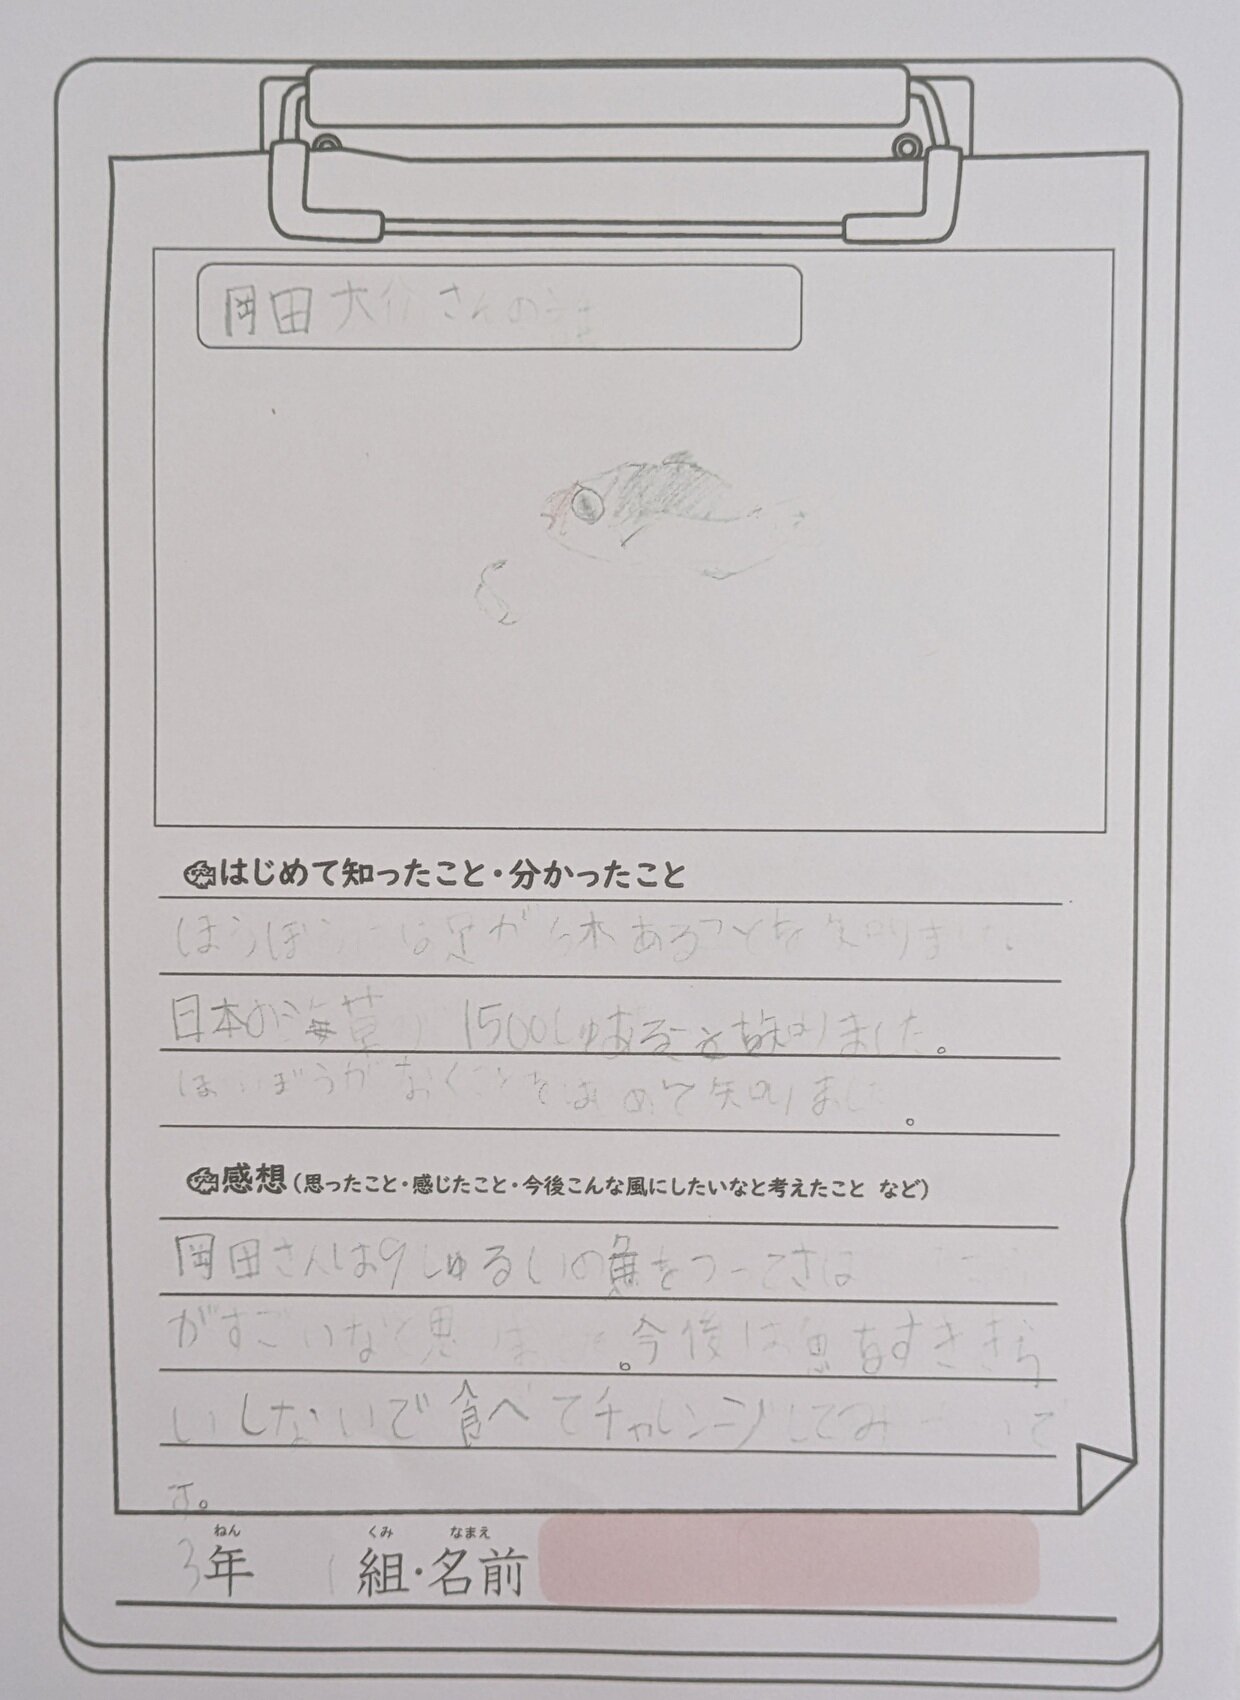 岡田大介さんの
はじめて知ったこと・分かったこと
ほうぼうには足が 本あることを知りました。
日本の海草が1500しゅあることを知りました。
ほうぼうがなくことをはじめて知りました。
感想(思ったこと・感じたこと・今後こんな風にしたいなと考えたこと など)
岡田さんは9しゅるいの魚をつってさば
がすごいなと思いました。今後は魚をすききら
いしないで食べてチャレンジしてみたいで
す。
ねん くみ なまえ
3年 1組・名前